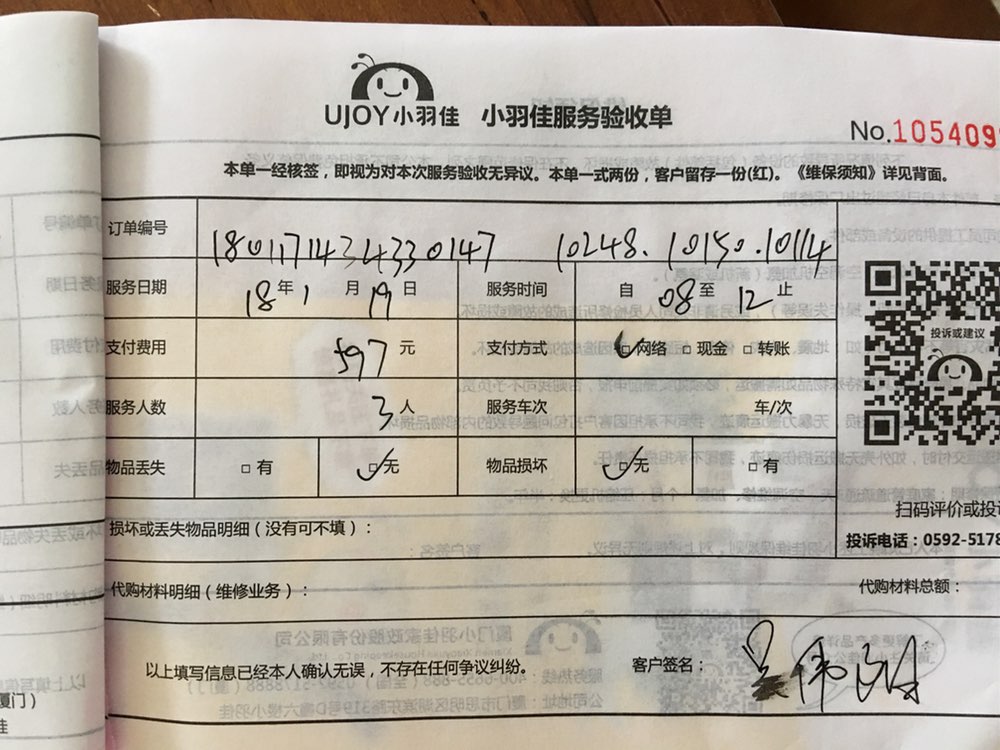 UJOY小羽佳 小羽佳服务验收单
No.105409
本单一经核签，即视为对本次服务验收无异议。本单一式两份，客户留存一份(红)。《维保须知》详见背面。
订单编号 1801171434330147 10248.10150.10114
服务日期 18年1月19日 服务时间 自08至12止
支付费用 597元 支付方式 ☑网络 □现金 □转账
服务人数 3人 服务车次 车/次
物品丢失 □有 ☑无 物品损坏 ☑无 □有
投诉或建议
扫码评价或投
损坏或丢失物品明细（没有可不填）：
投诉电话：0592-5178
代购材料明细（维修业务）： 代购材料总额：
以上填写信息已经本人确认无误，不存在任何争议纠纷。 客户签名：
厦门）
佳